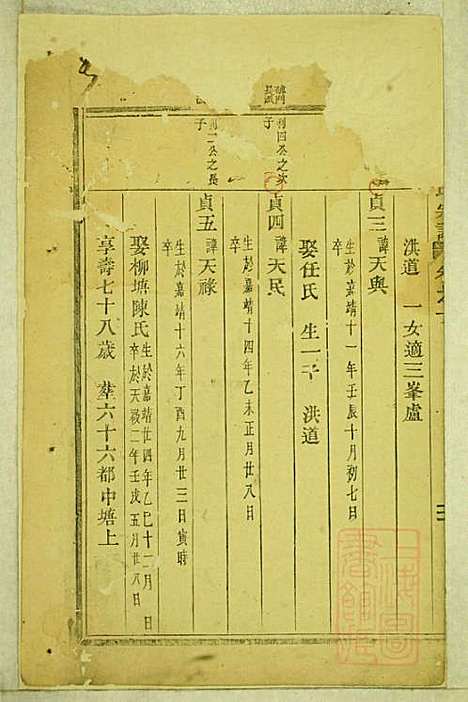 洪道 一女適三峯盧
貞三 諱天與
生於嘉靖十一年壬辰十月初七日
卒
娶任氏 生一子 洪道
利四公之次子
貞四 諱天民
生於嘉靖十四年乙未正月廿八日
卒
利二公之長子
貞五 諱天祿
生於嘉靖十六年丁酉九月廿三日寅時
卒
娶柳塘陳氏 生於嘉靖廿四年乙巳十一月 日
卒於天啟二年壬戌五月廿八日
享壽七十八歲 塟六十六都中塘上